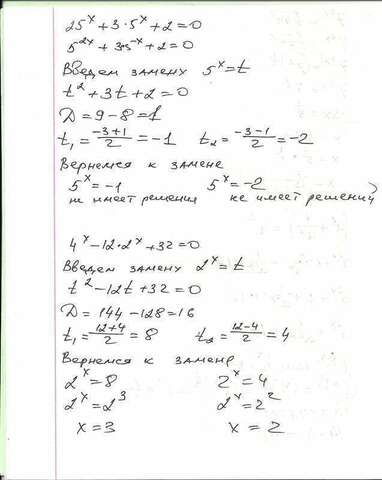 25^x+3·5^x+2=0
5^2x+3·5^x+2=0
Введем замену 5^x=t
t^2+3t+2=0
D=9-8=1
t₁=(-3+1)/2=-1 t₂=(-3-1)/2=-2
Вернемся к замене
5^x=-1 5^x=-2
не имеет решения не имеет решений
4^x-12·2^x+32=0
Введем замену 2^x=t
t^2-12t+32=0
D=144-128=16
t₁=(12+4)/2=8 t₂=(12-4)/2=4
Вернемся к замене
2^x=8 2^x=4
2^x=2^3 2^x=2^2
x=3 x=2